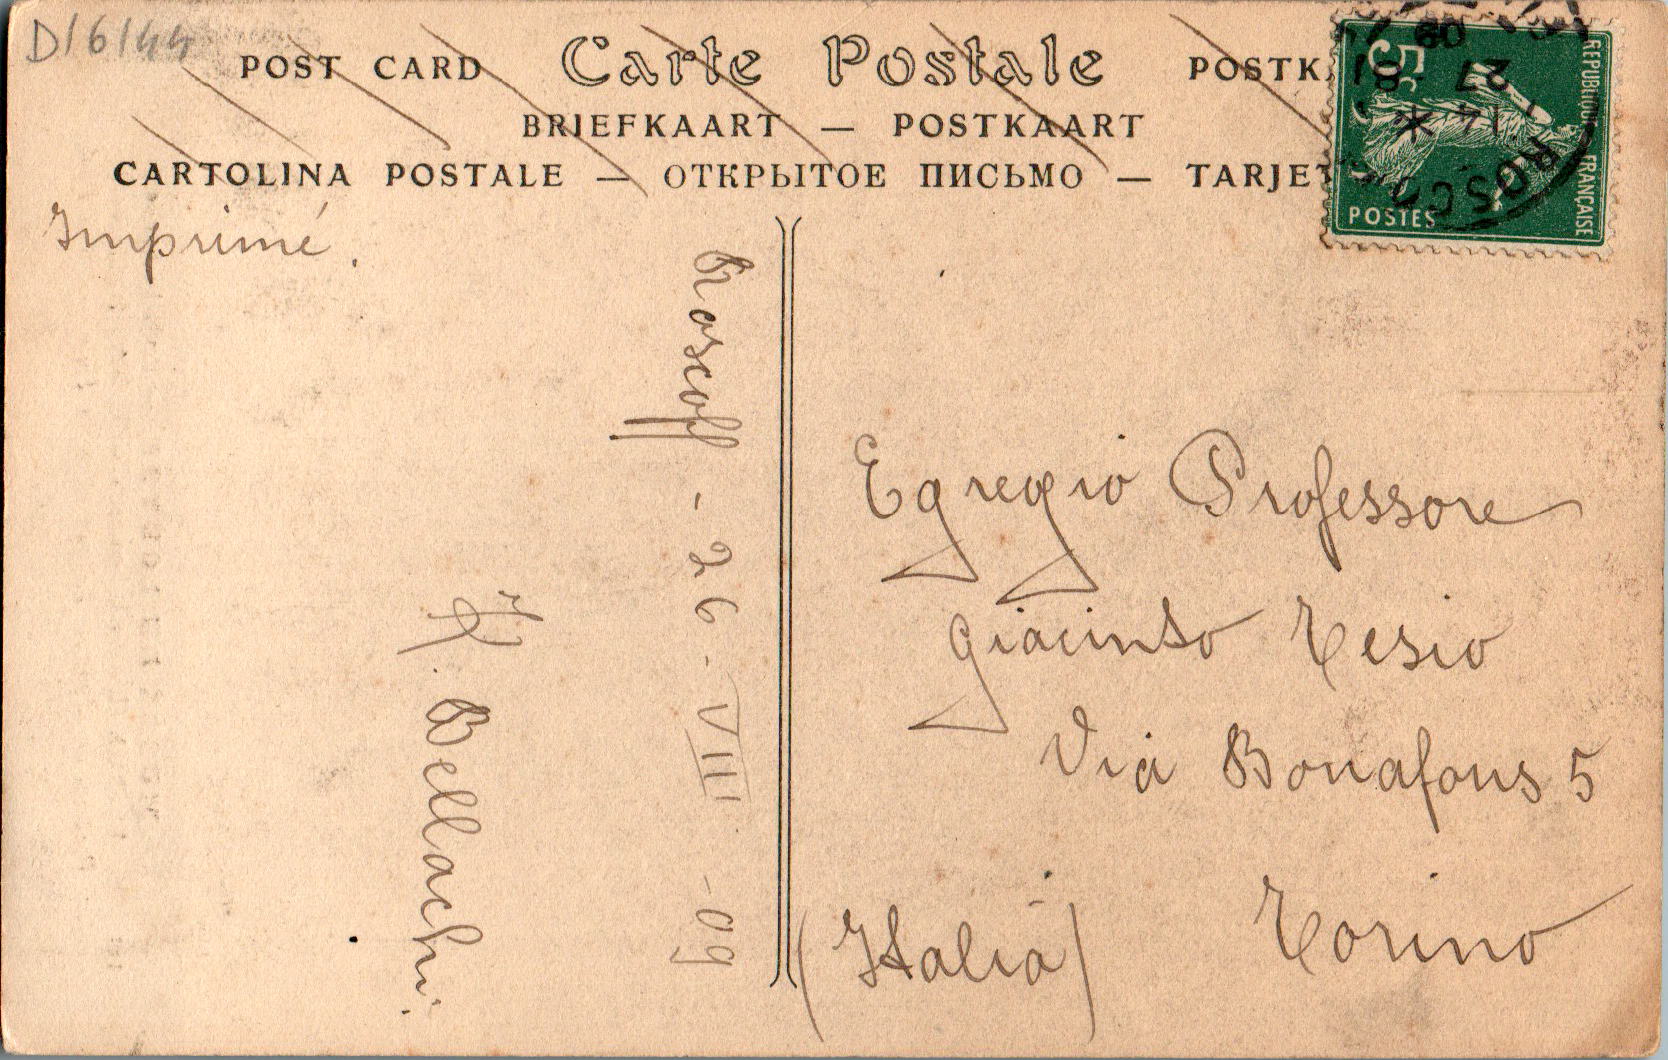 D/6/44
POST CARD Carte Postale POSTK
BRIEFKAART — POSTKAART
CARTOLINA POSTALE — ОТКРЫТОЕ ПИСЬМО — TARJET
REPUBLIQUE FRANÇAISE
5c
POSTES
ROSCO
14 *
27 8
09
Imprimé.
Roscoff - 26 - VIII - 09
Bellachi
Egregio Professore
Giacinto Tesio
Via Bonafous 5
Torino
(Italia)